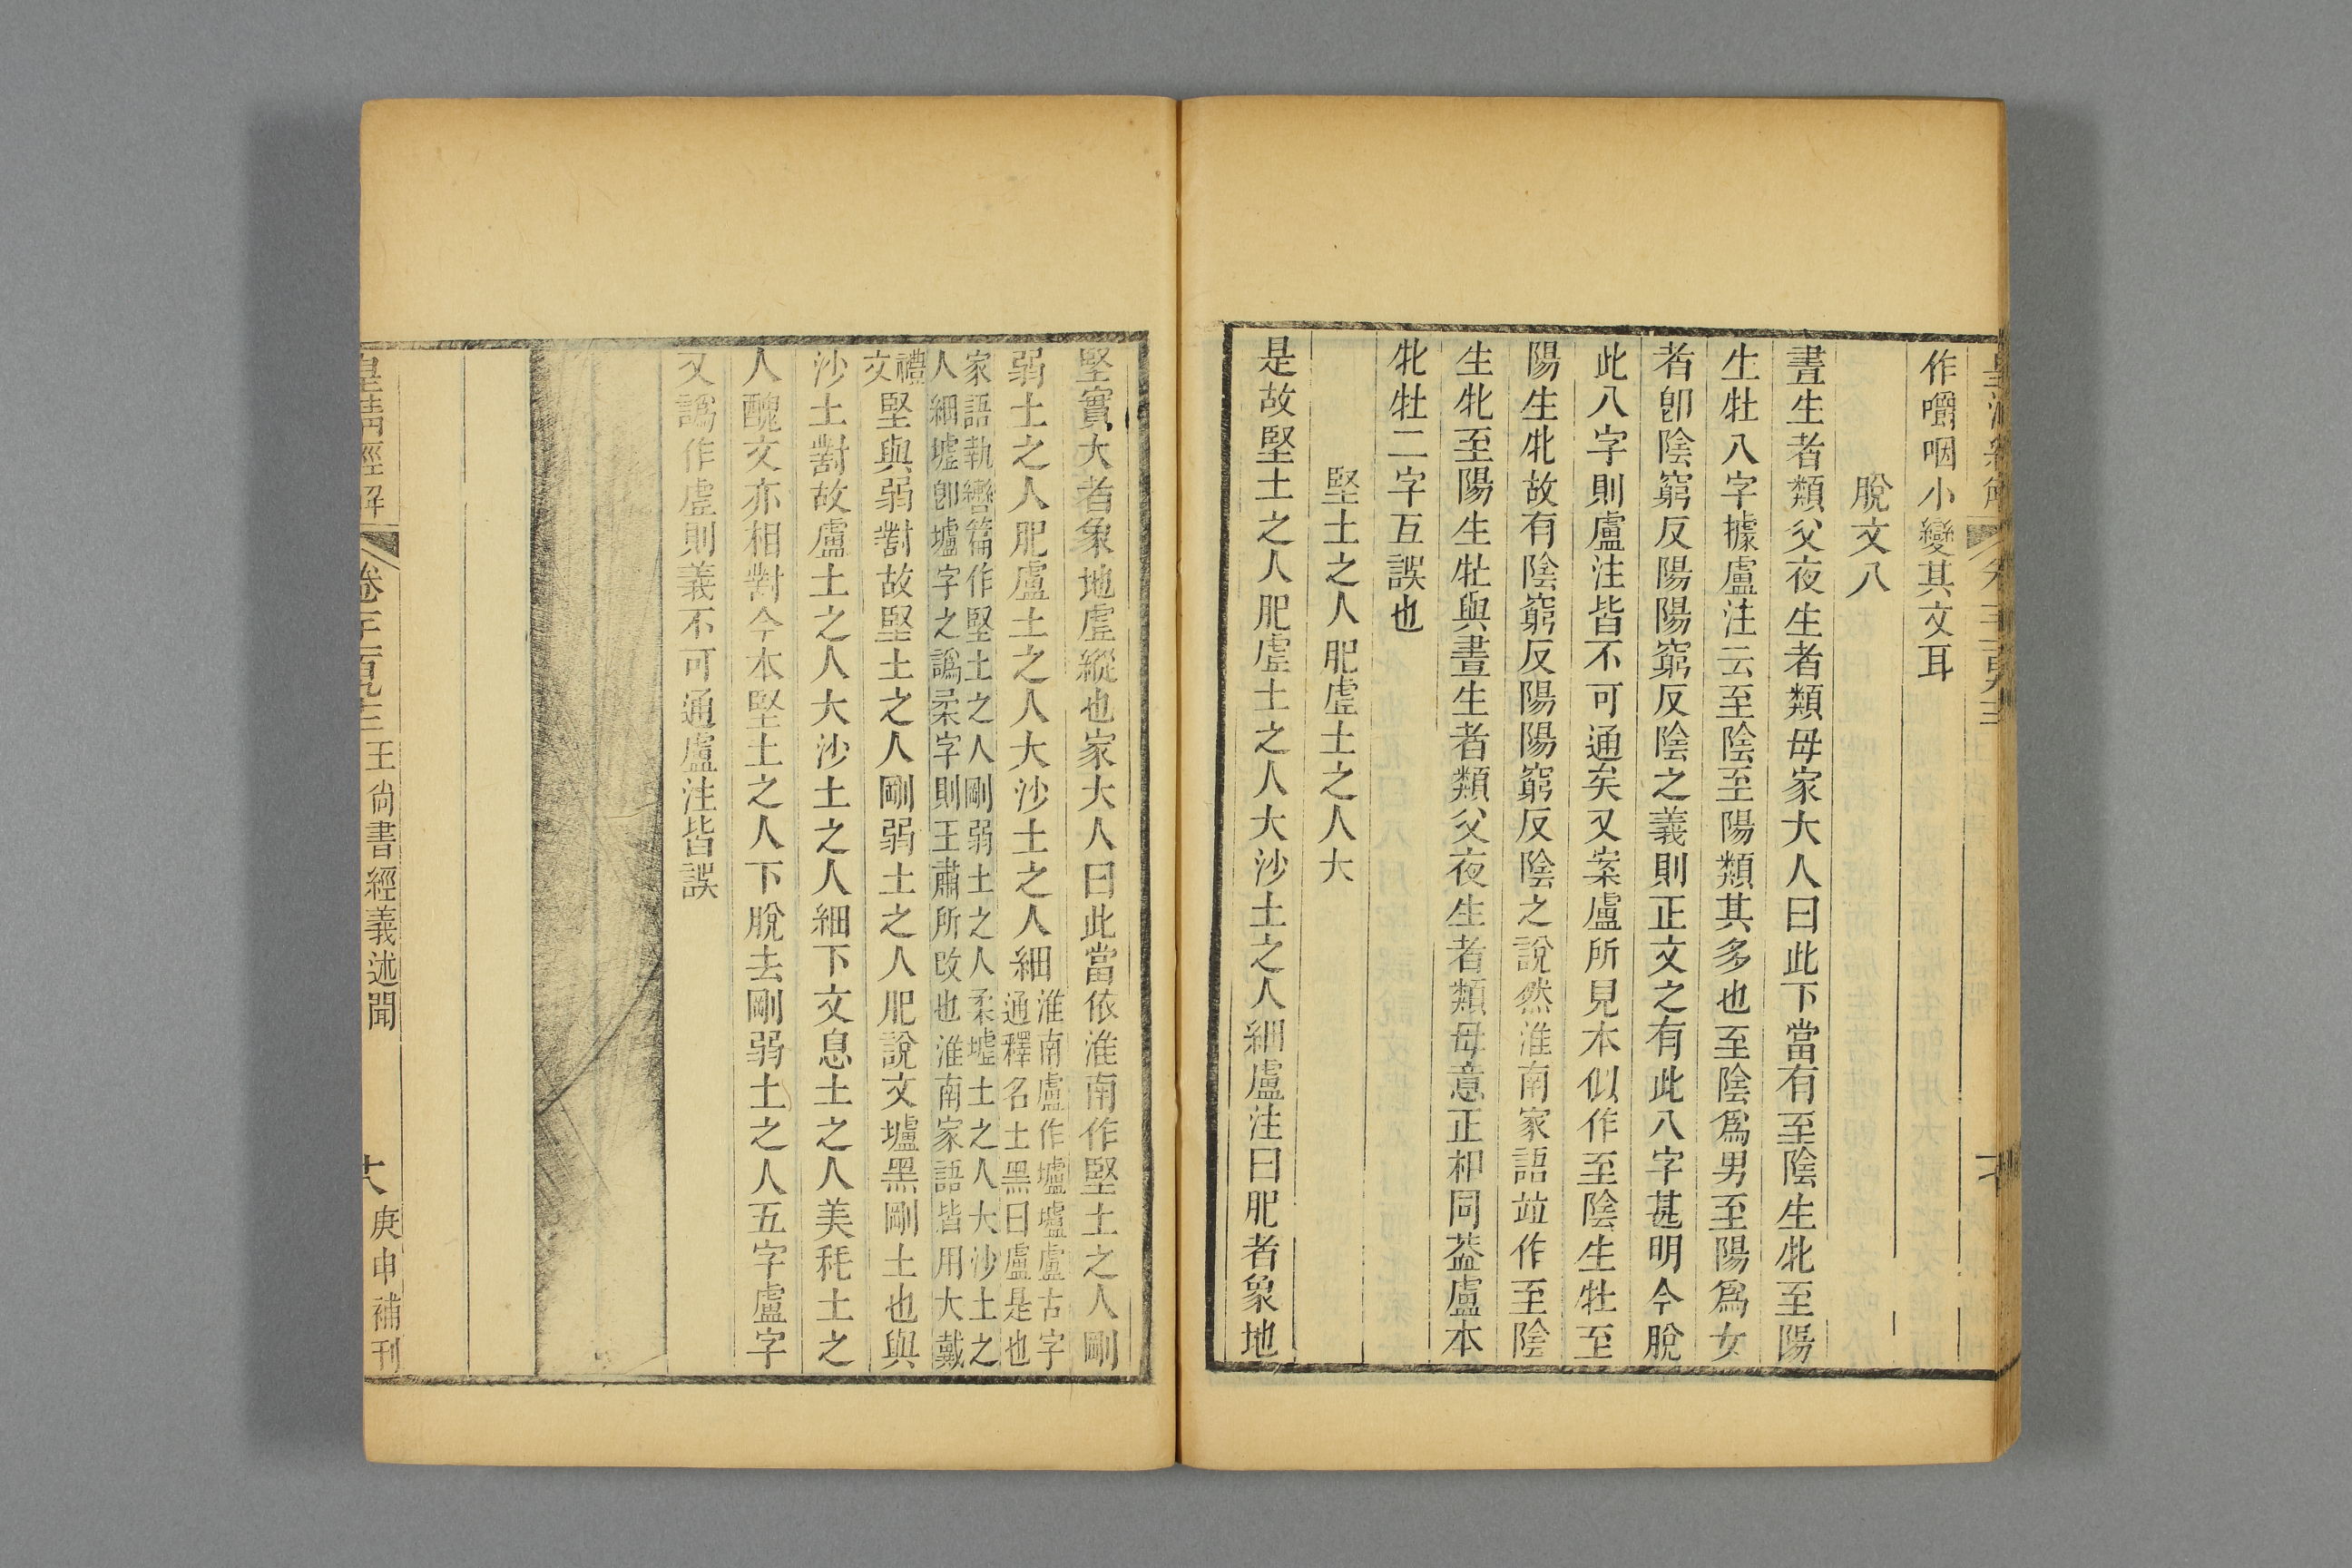 作嚼咽小變其文耳
脫文八
晝生者類父夜生者類母家大人曰此下當有至陰生牝至陽
生牡八字據盧注云至陰至陽類其多也至陰爲男至陽爲女
者卽陰窮反陽陽窮反陰之義則正文之有此八字甚明今脫
此八字則盧注皆不可通矣又案盧所見本似作至陰生牡至
陽生牝故有陰窮反陽陽窮反陰之說然淮南家語竝作至陰
生牝至陽生牡與晝生者類父夜生者類母意正相同葢盧本
牝牡二字互誤也
堅土之人肥虛土之人大
是故堅土之人肥虛土之人大沙土之人細盧注曰肥者象地
堅實大者象地虛縱也家大人曰此當依淮南作堅土之人剛
弱土之人肥盧土之人大沙土之人細
淮南盧作壚壚盧古字
通釋名土黑曰盧是也
家語執轡篇作堅土之人剛弱土之人柔墟土之人大沙土之
人細墟卽壚字之譌柔字則王肅所改也淮南家語皆用大戴
禮
文
堅與弱對故堅土之人剛弱土之人肥說文壚黑剛土也與
沙土對故盧土之人大沙土之人細下文息土之人美秏土之
人醜文亦相對今本堅土之人下脫去剛弱土之人五字盧字
又譌作虛則義不可通盧注皆誤
皇清經解
王尙書經義述聞
庚申補刊